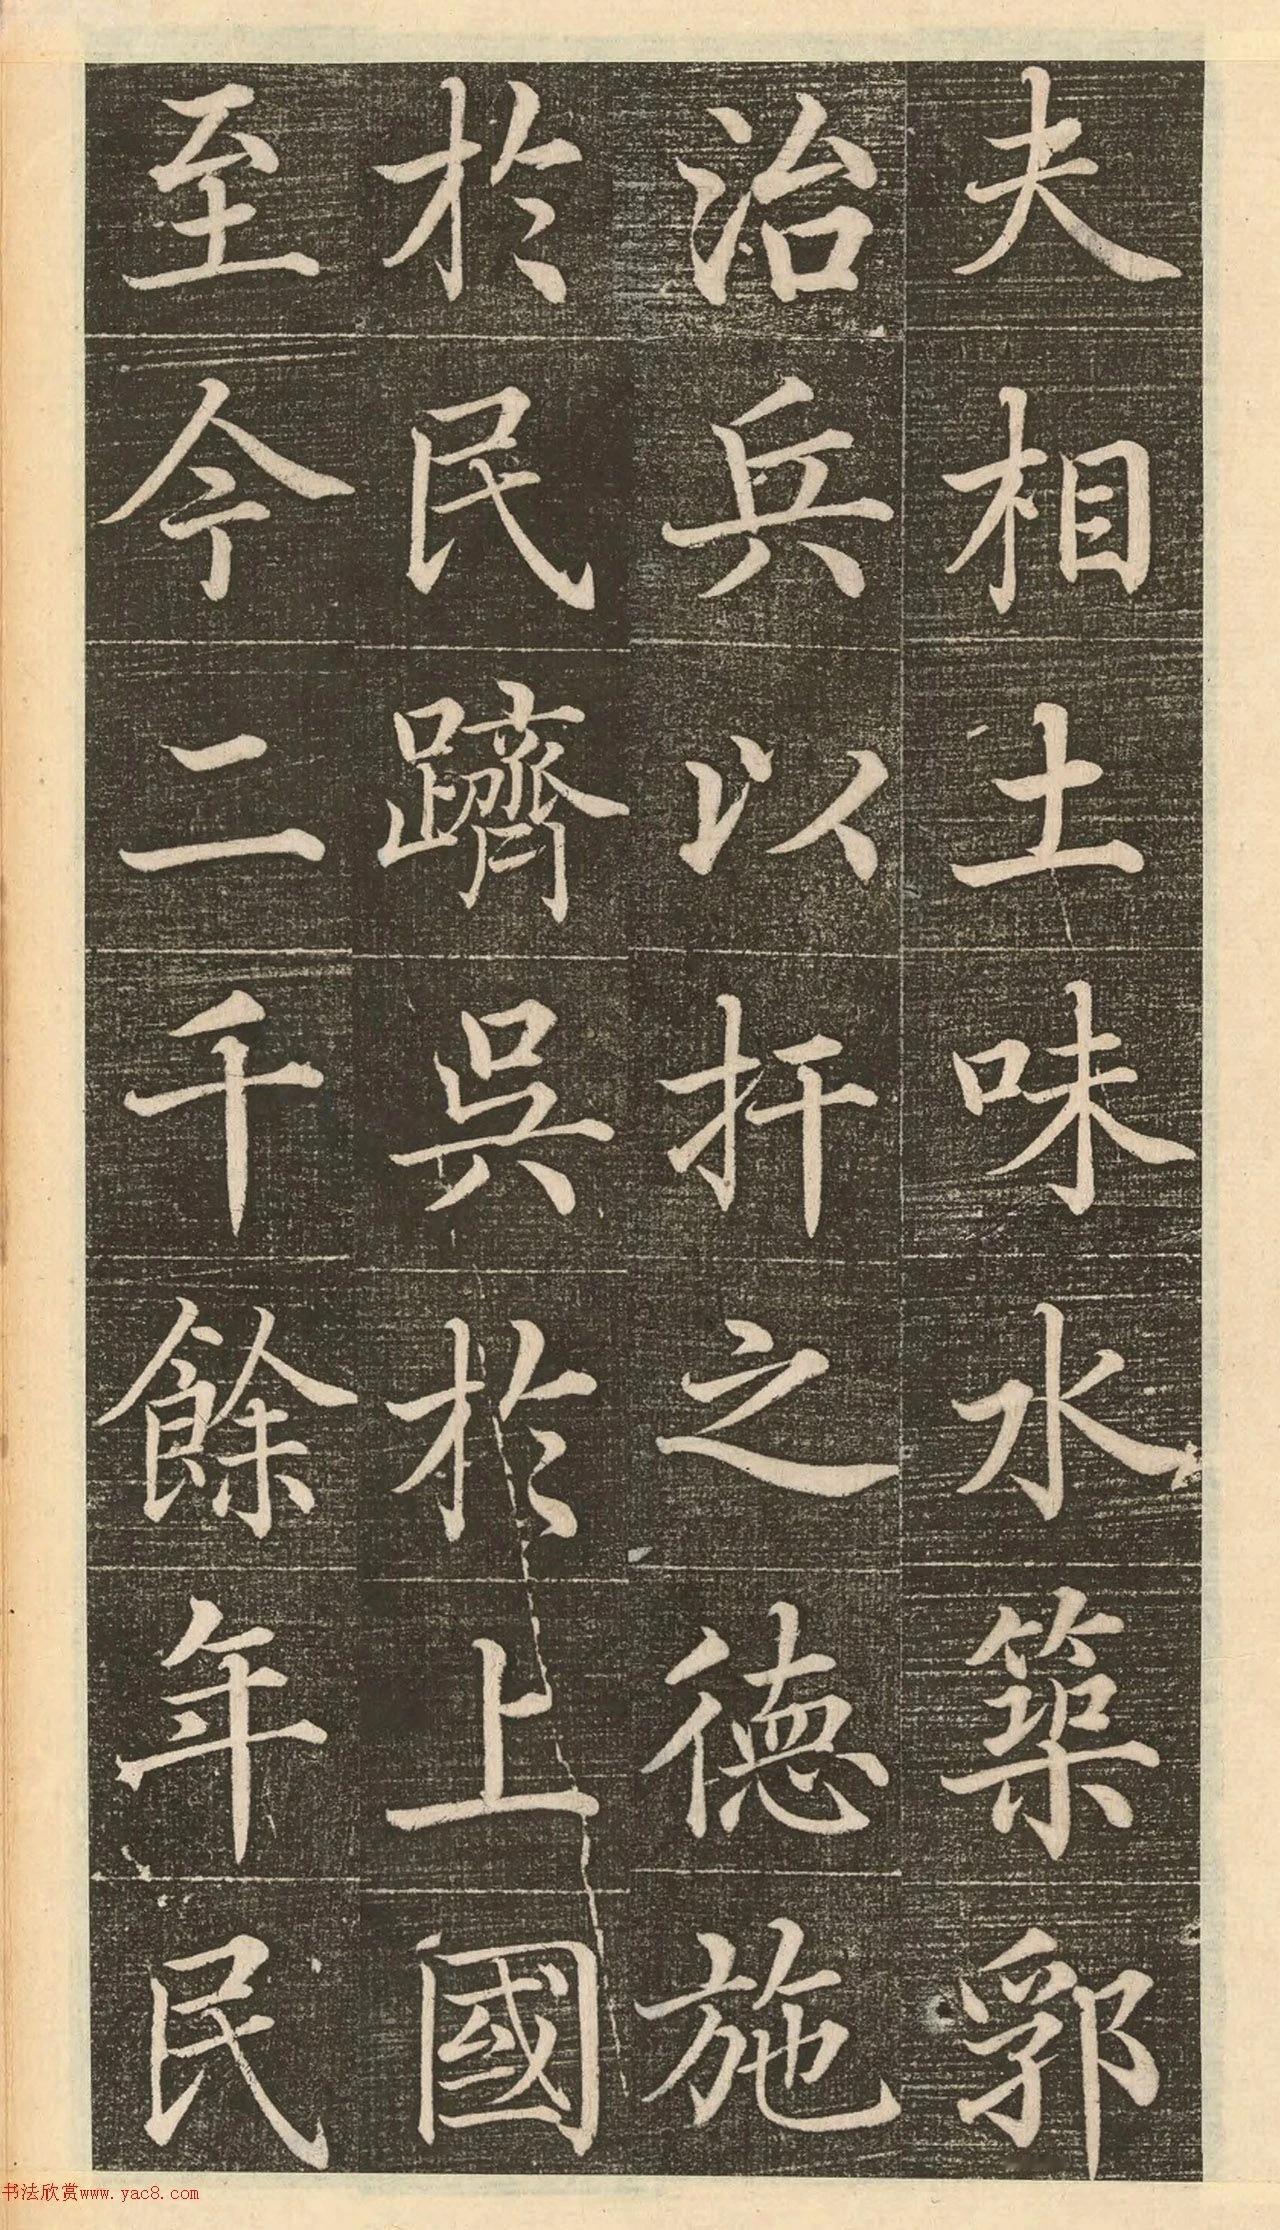 夫相土味水築郛
治兵以扞之德施
於民躋吳於上國
至今二千餘年民
书法欣赏www.yac8.com